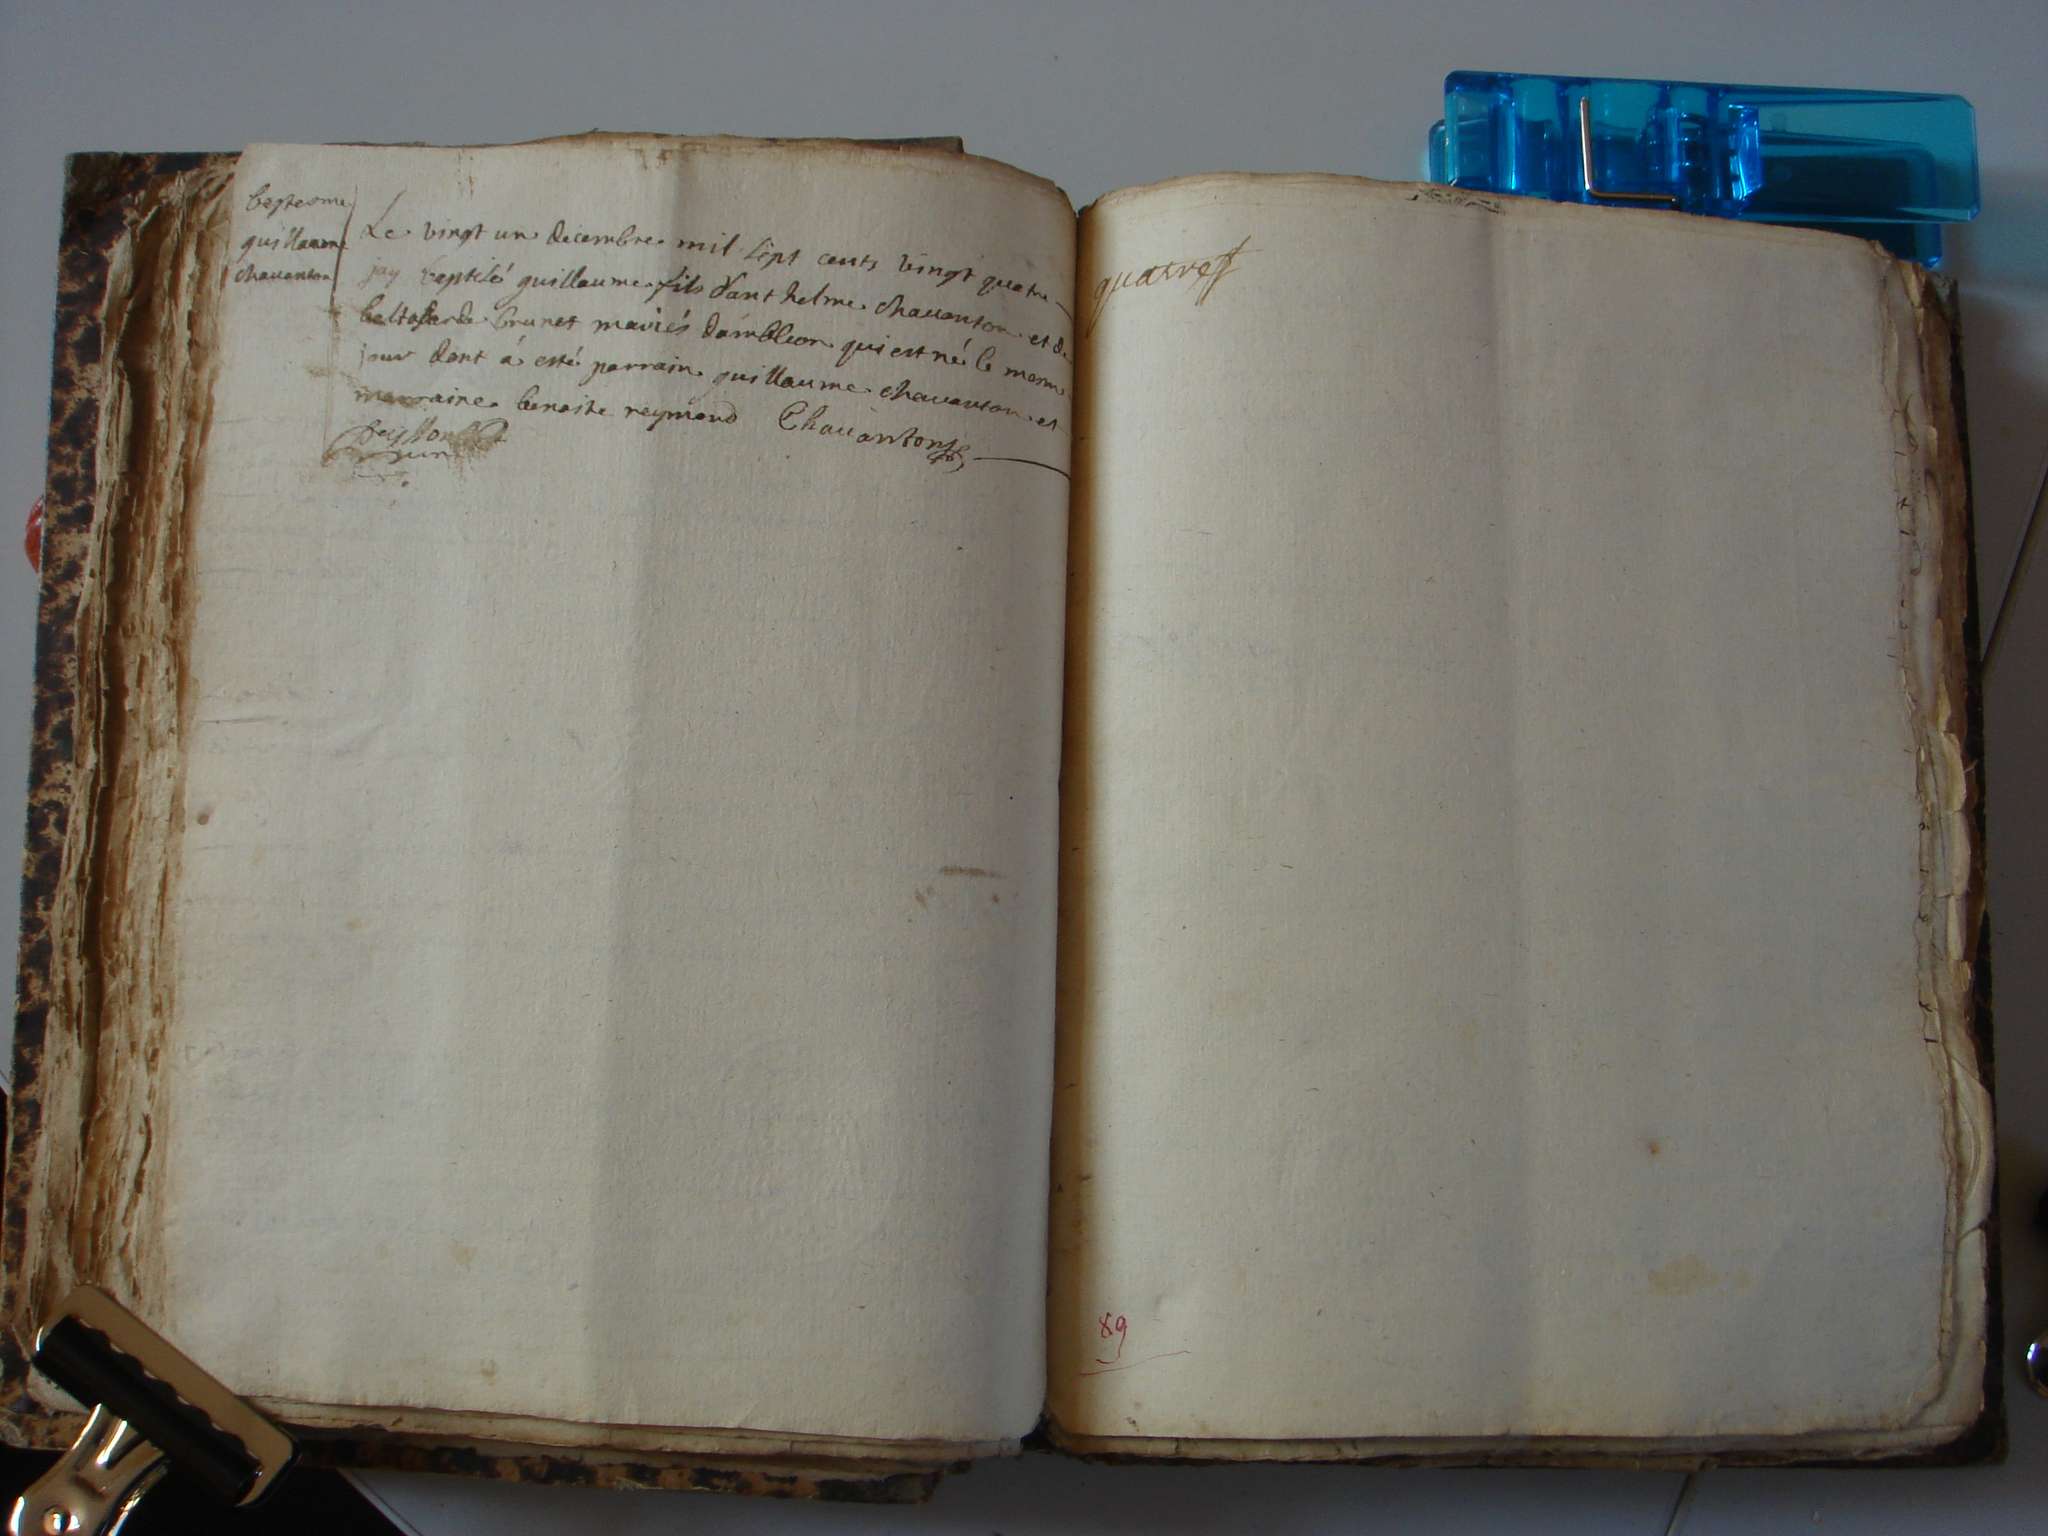 baptesme
guillaume
chavanton
Le vingt un decembre mil sept cents vingt quatre
jay baptisé guillaume fils d'anthelme chavanton et de
brunet mariés d'ambleon qui est né le mesme
jour dont á esté parrain guillaume chavanton et
marraine benoite reymond Chavanton
quatre
89